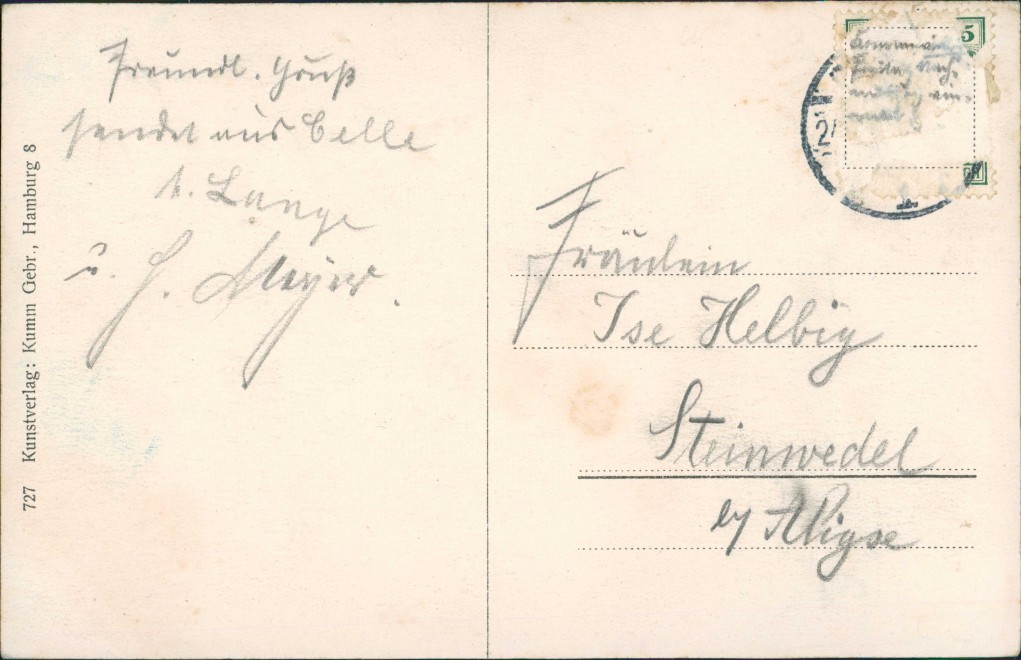 Freundl. Gruß
sendet aus Celle
Lange
u. H. Meyer.
Fräulein
Ise Helbig
Steinwedel
by Aligse
5
727 Kunstverlag: Kumm Gebr., Hamburg 8